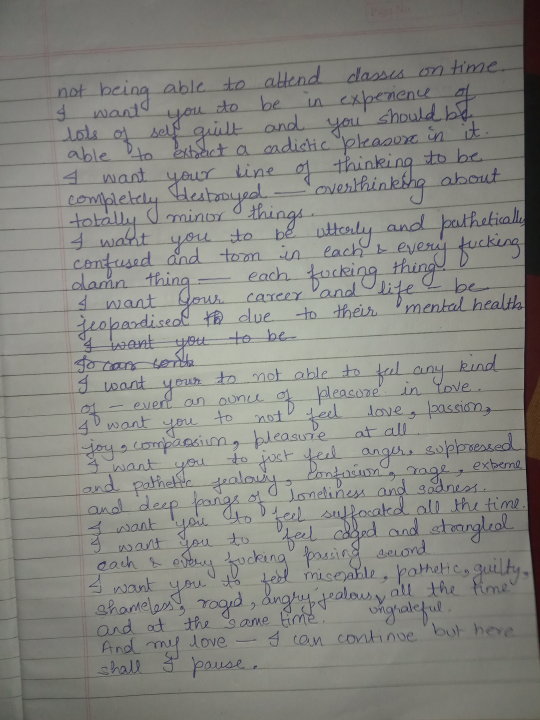 not being able to attend classes on time.
I want you to be in experience of
lots of self guilt and you should be
able to extract a cadistic pleasure in it.
I want your line of thinking to be
completely destroyed — overthinking about
totally minor things.
I want you to be utterly and pathetically
confused and torn in each & every fucking
damn thing — each fucking thing.
I want your career and life - be
jeopardised to due to their mental health
I want you to be
I want your to not able to feel any kind
of - even an ounce of pleasure in love.
I want you to not feel love, passion,
joy, compassion, pleasure at all.
I want you to just feel anger, suppressed
and pathetic jealousy, confusion, rage, extreme
and deep pangs of loneliness and sadness.
I want you to feel suffocated all the time.
I want you to feel caged and strangled
each & every fucking passing second
I want you to feel miserable, pathetic, guilty,
shameless, raged, angry, jealous, ungrateful all the time
and at the same time.
And my love — I can continue but here
shall I pause.